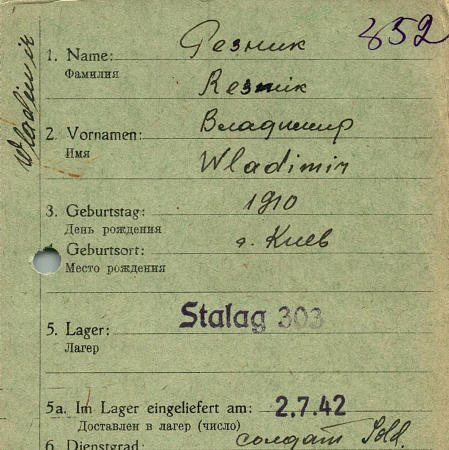 Wladimir
352
1. Name: Резник
Фамилия
Resnik
2. Vornamen: Владимир
Имя
Wladimir
3. Geburtstag: 1910
День рождения
Geburtsort: г. Киев
Место рождения
5. Lager: Stalag 303
Лагер
5a. Im Lager eingeliefert am: 2.7.42
Доставлен в лагер (число)
6. Dienstgrad: солдат Sold.